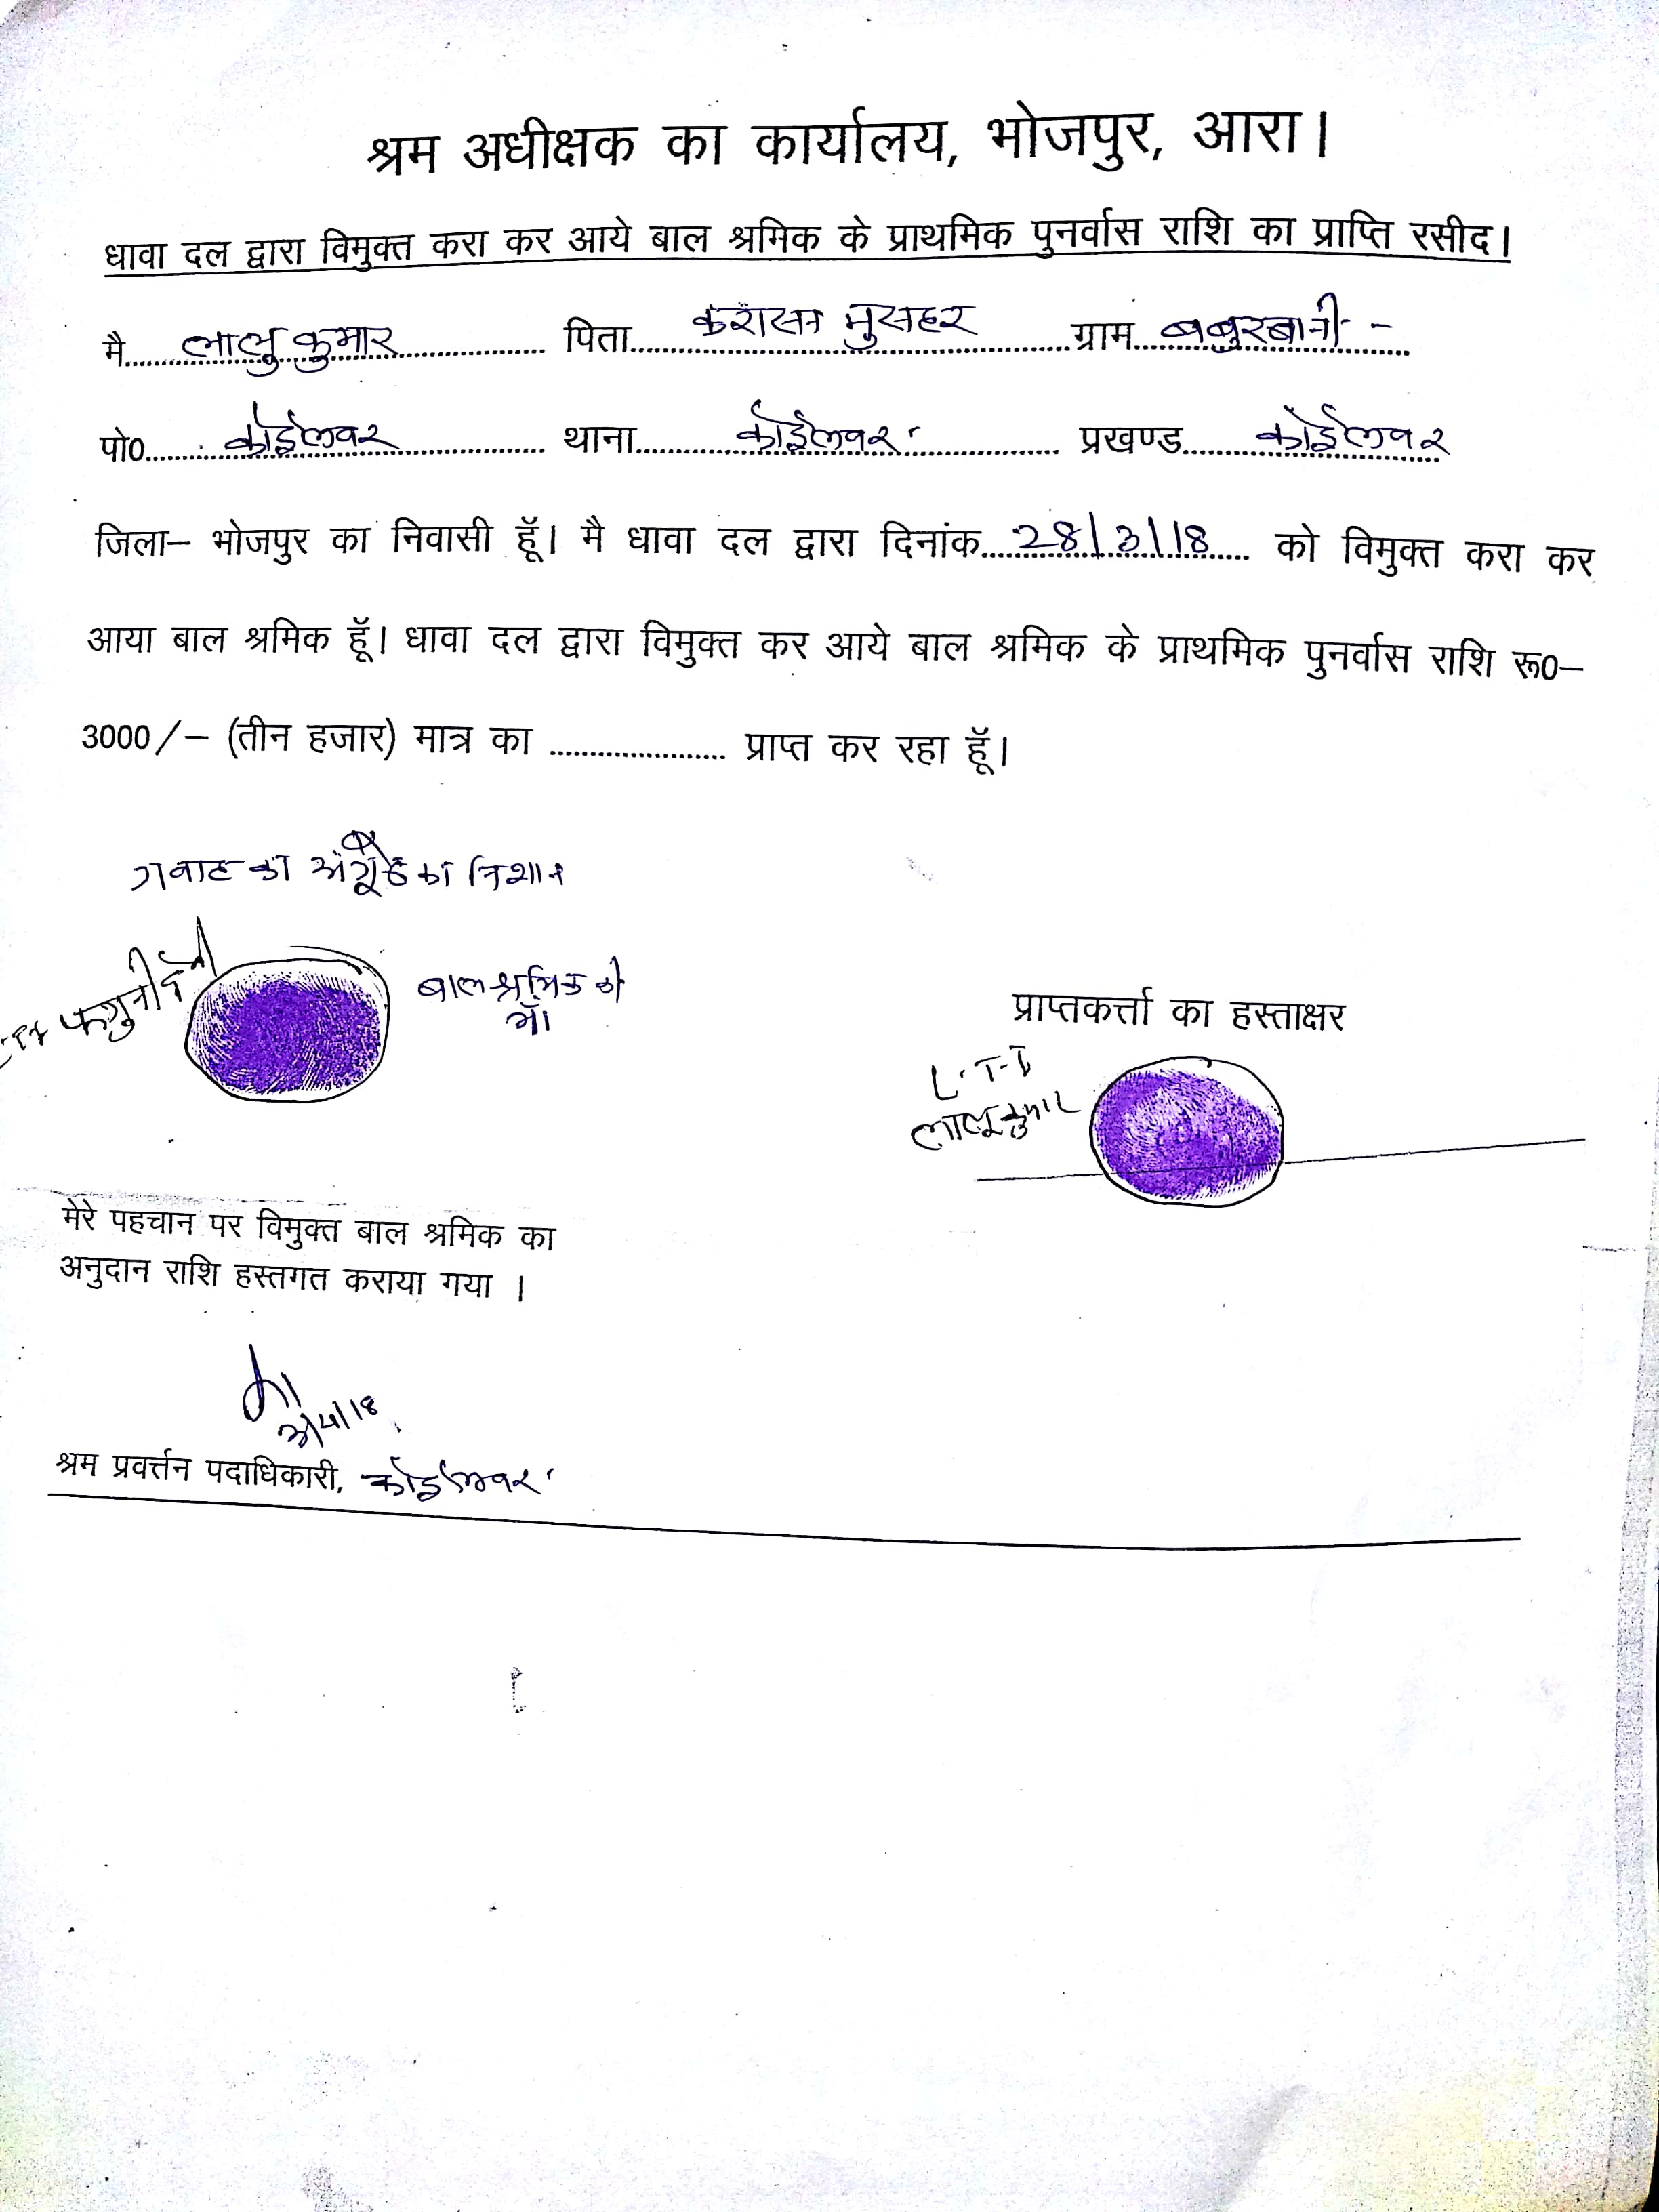 श्रम अधीक्षक का कार्यालय, भोजपुर, आरा।
धावा दल द्वारा विमुक्त करा कर आये बाल श्रमिक के प्राथमिक पुनर्वास राशि का प्राप्ति रसीद।
मै..... लालु कुमार ..... पिता..... मुसहर ..... ग्राम..... बबुरबानी -
पो०..... कोईलवर ..... थाना..... कोईलवर ..... प्रखण्ड..... कोईलवर
जिला– भोजपुर का निवासी हूँ। मै धावा दल द्वारा दिनांक..... 28/3/18 ..... को विमुक्त करा कर
आया बाल श्रमिक हूँ। धावा दल द्वारा विमुक्त कर आये बाल श्रमिक के प्राथमिक पुनर्वास राशि रू०–
3000/– (तीन हजार) मात्र का ..................... प्राप्त कर रहा हूँ।
गवाह का अंगूठे का निशान
फगुनी देवी
बाल श्रमिक की
माँ
प्राप्तकर्त्ता का हस्ताक्षर
L.T.I
लालु कुमार
मेरे पहचान पर विमुक्त बाल श्रमिक का
अनुदान राशि हस्तगत कराया गया ।
श्रम प्रवर्त्तन पदाधिकारी, कोईलवर